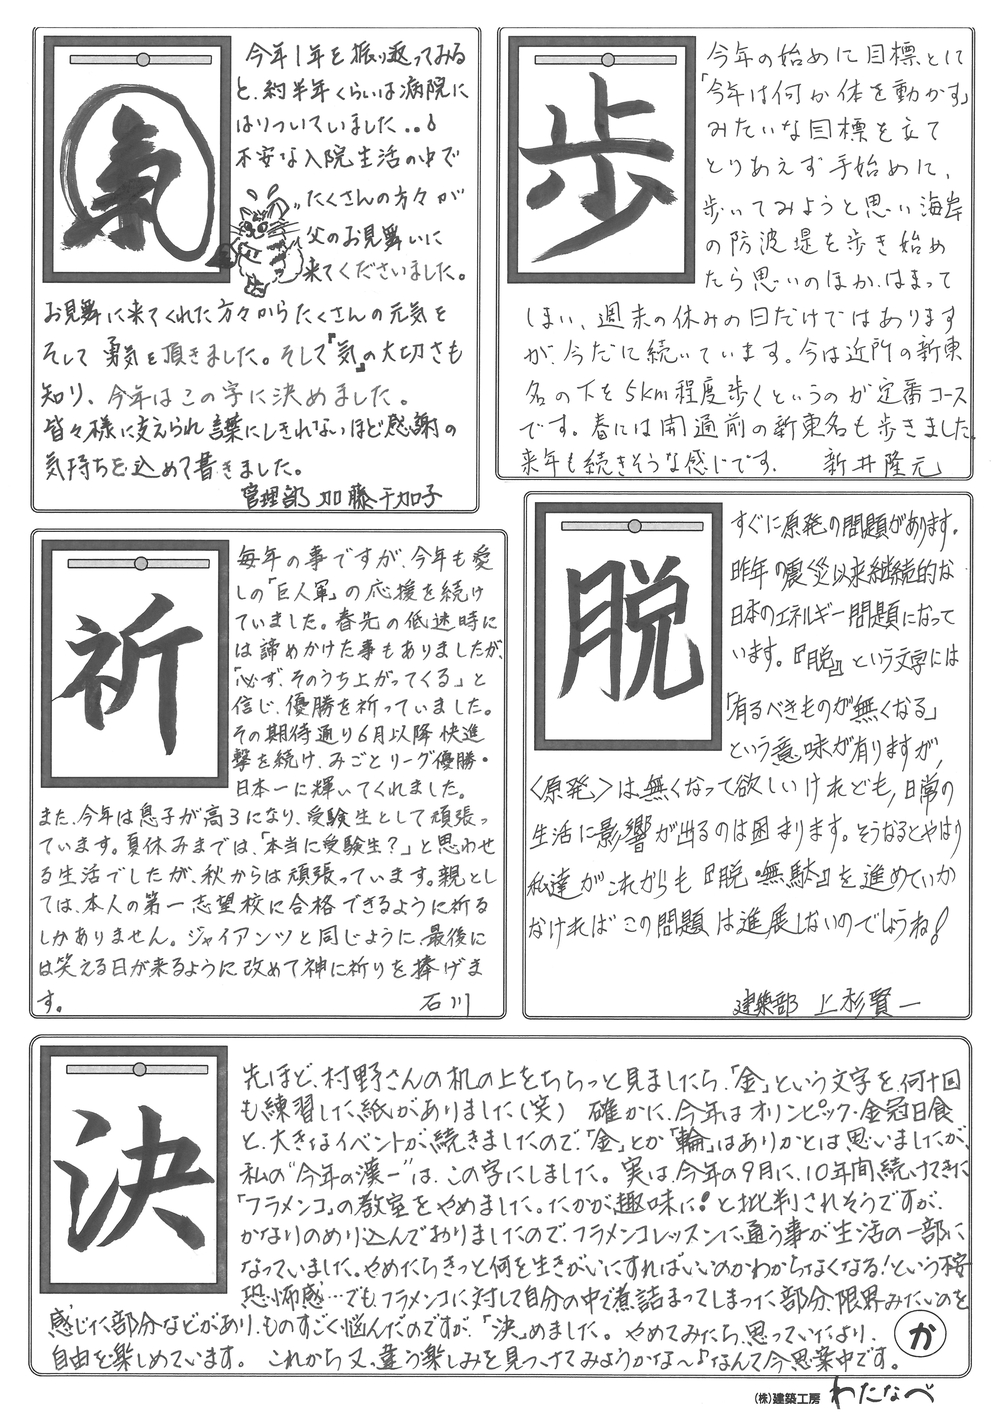 氣
今年1年を振り返ってみる
と、約半年くらいは病院に
はりついていました。。
不安な入院生活の中で
たくさんの方々が
父のお見舞いに
来てくださいました。
お見舞に来てくれた方々からたくさんの元気を
そして勇気を頂きました。そして『気』の大切さも
知り、今年はこの字に決めました。
皆々様に支えられ言葉にしきれないほど感謝の
気持ちを込めて書きました。
管理部 加藤千加子
歩
今年の始めに目標として
「今年は何か体を動かす」
みたいな目標を立て
とりあえず手始めに、
歩いてみようと思い海岸
の防波堤を歩き始め
たら思いのほか、はまって
しまい、週末の休みの日だけではあります
が、今だに続いています。今は近所の新東
名の下を5km程度歩くというのが定番コース
です。春には開通前の新東名も歩きました。
来年も続きそうな感じです。 新井隆元
祈
毎年の事ですが、今年も愛
しの「巨人軍」の応援を続け
ていました。春先の低迷時に
は諦めかけた事もありましたが、
「必ず、そのうち上がってくる」と
信じ、優勝を祈っていました。
その期待通り6月以降快進
撃を続け、みごとリーグ優勝・
日本一に輝いてくれました。
また、今年は息子が高3になり、受験生として頑張っ
ています。夏休みまでは、「本当に受験生?」と思わせ
る生活でしたが、秋からは頑張っています。親とし
ては、本人の第一志望校に合格できるように祈る
しかありません。ジャイアンツと同じように、最後に
は笑える日が来るように改めて神に祈りを捧げま
す。 石川
脱
すぐに原発の問題があります。
昨年の震災以来継続的な
日本のエネルギー問題になって
います。『脱』という文字には
「有るべきものが無くなる」
という意味が有りますが、
〈原発〉は無くなって欲しいけれども、日常の
生活に影響が出るのは困まります。そうなるとやはり
私達がこれからも『脱・無駄』を進めていか
なければこの問題は進展しないのでしょうね!
建築部 上杉賢一
決
先ほど、村野さんの机の上をちらっと見ましたら、「金」という文字を、何十回
も練習した紙がありました(笑) 確かに、今年はオリンピック・金冠日食
と、大きなイベントが続きましたので、「金」とか「輪」はありかとは思いましたが、
私の"今年の漢一"は、この字にしました。実は、今年の9月に、10年間続けてきた
「フラメンコ」の教室をやめました。たかが趣味に!と批判されそうですが、
かなりのめり込んでおりましたので、フラメンコレッスンに通う事が生活の一部に
なっていました。やめたらきっと何を生きがいにすればいいのかわからなくなる!という不安
恐怖感…でも、フラメンコに対して自分の中で煮詰まってしまった部分、限界みたいのを
感じた部分などがあり、ものすごく悩んだのですが、「決」めました。やめてみたら、思っていたより、
自由を楽しめています。 これから又、違う楽しみを見つけてみようかな～♪なんて今思案中です。
か
(株)建築工房 わたなべ